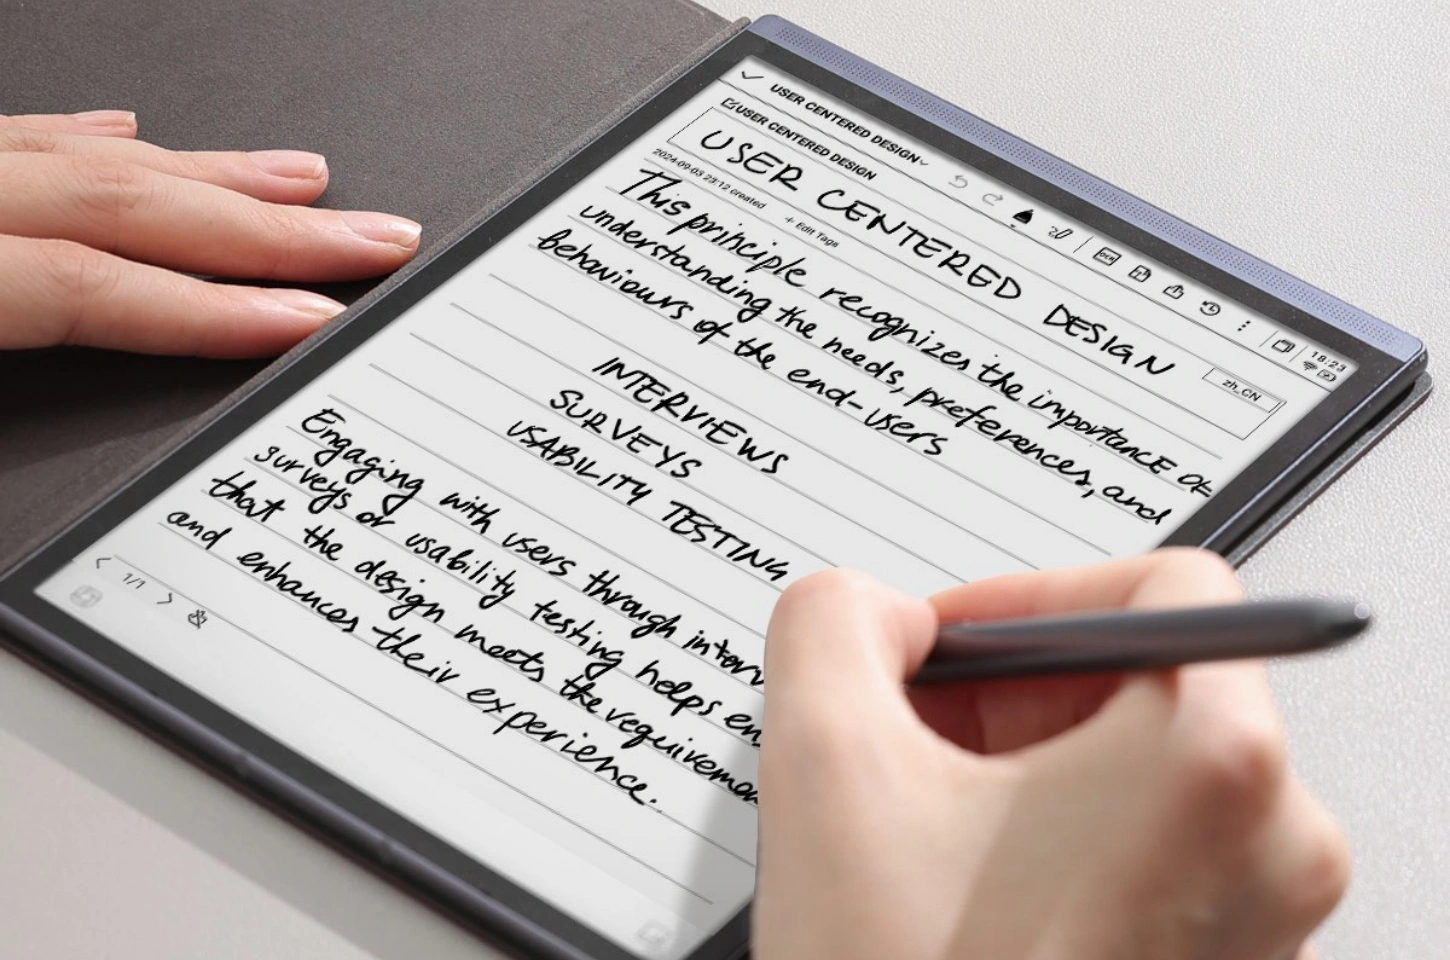 USER CENTERED DESIGN
USER CENTERED DESIGN
18:23
USER CENTERED DESIGN
zh_CN
2024-09-03 23:12 created + Edit Tags
This principle recognizes the importance of
understanding the needs, preferences, and
behaviours of the end-users
INTERVIEWS
SURVEYS
USABILITY TESTING
Engaging with users through
surveys or usability testing helps
that the design meets the
and enhances their experience.
1/1